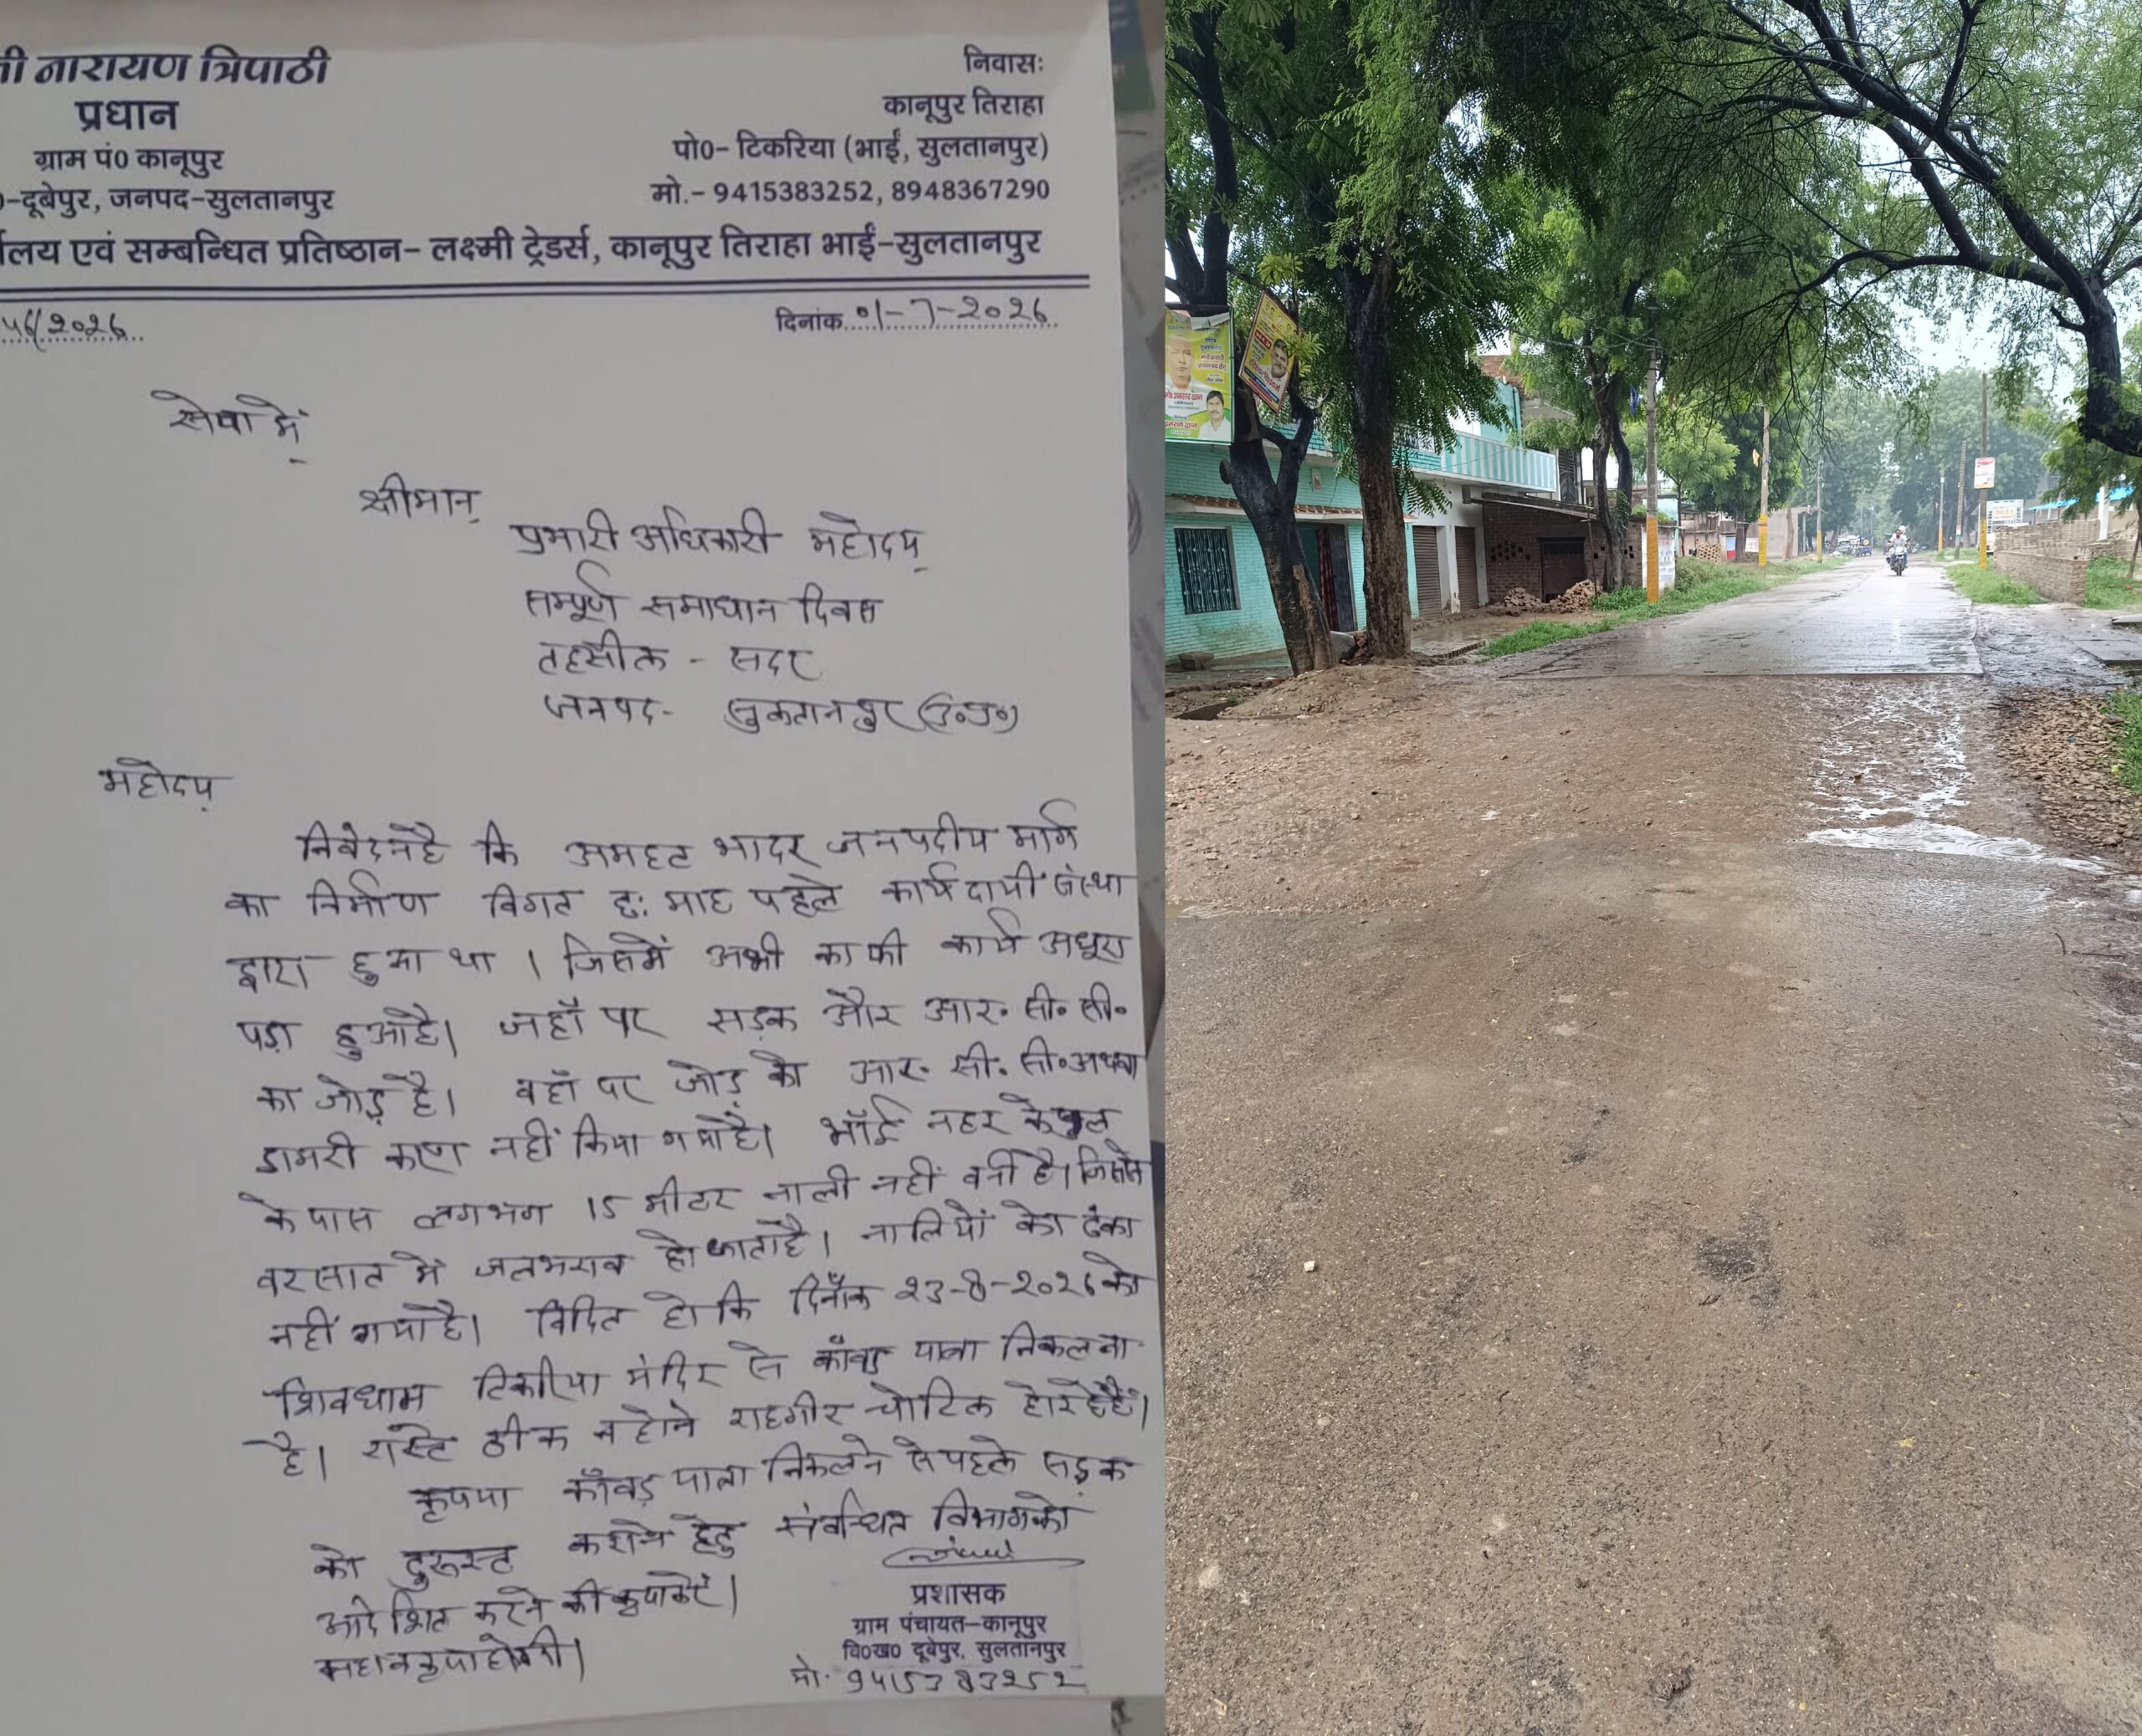 नारायण त्रिपाठी
प्रधान
ग्राम पं0 कानूपुर
-दूबेपुर, जनपद-सुलतानपुर
निवासः
कानूपुर तिराहा
पो0- टिकरिया (भाई, सुलतानपुर)
मो.- 9415383252, 8948367290
लय एवं सम्बन्धित प्रतिष्ठान- लक्ष्मी ट्रेडर्स, कानूपुर तिराहा भाई-सुलतानपुर
56/2026
दिनांक 01-7-2026
सेवा में
श्रीमान्
प्रभारी अधिकारी महोदय
सम्पूर्ण समाधान दिवस
तहसील - सदर
जनपद- सुलतानपुर (उ०प्र०)
महोदय
निवेदन है कि अमहट भादर जनपदीय मार्ग
का निर्माण विगत छः माह पहले कार्यदायी संस्था
द्वारा हुआ था । जिसमें अभी काफी कार्य अधूरा
पड़ा हुआ है। जहाँ पर सड़क और आर. सी. सी.
का जोड़ है। वहाँ पर जोड़ को आर. सी. सी. अथवा
डामरी करण नहीं किया गया है। भाँई नहर के पुल
के पास लगभग 15 मीटर नाली नहीं बनी है। जिससे
बरसात में जलभराव हो जाता है। नालियों को ढंका
नहीं गया है। विदित हो कि दिनाँक 23-8-2026 को
शिवधाम टिकरिया मंदिर से काँवड़ यात्रा निकलना
है। रास्ते ठीक न होने राहगीर चोटिल हो रहे हैं।
कृपया काँवड़ यात्रा निकलने से पहले सड़क
को दुरूस्त कराने हेतु संबन्धित विभाग को
आदेशित करने की कृपा करें।
महान कृपा होगी।
प्रशासक
ग्राम पंचायत-कानूपुर
वि0ख0 दूबेपुर, सुलतानपुर
मो. 9415383252